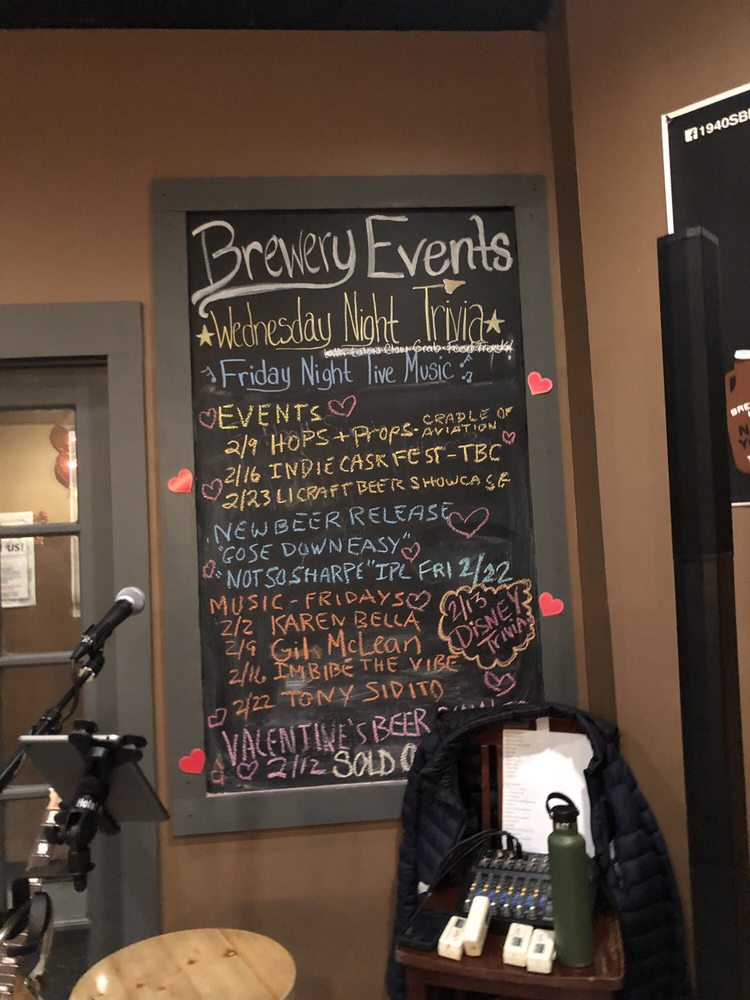 Brewery Events
Wednesday Night Trivia
Friday Night live Music
EVENTS
2/9 HOPS + Props - CRADLE OF AVIATION
2/16 INDIE CASK FEST - TBC
2/23 LI CRAFT BEER SHOWCASE
NEW BEER RELEASE
"GOSE DOWN EASY"
"NOT SO SHARPE" IPL FRI 2/22
MUSIC - FRIDAYS
2/2 KAREN BELLA
2/9 Gil McLean
2/16 IMBIBE THE VIBE
2/22 TONY SIDITO
2/13
DISNEY
Trivia
VALENTINE'S BEER
2/12 SOLD
1940SB